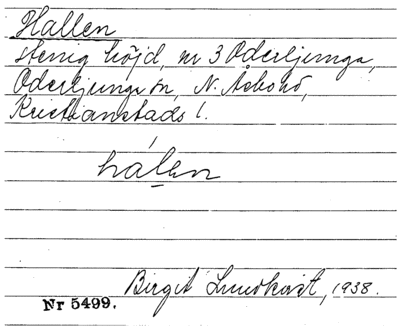 Hallen
stenig höjd, nr 3 Oderljunga,
Oderljunga sn, N. Åsbo hd,
Kristianstads l.
hálen
Birgit Lundkvist, 1938.
Nr 5499.